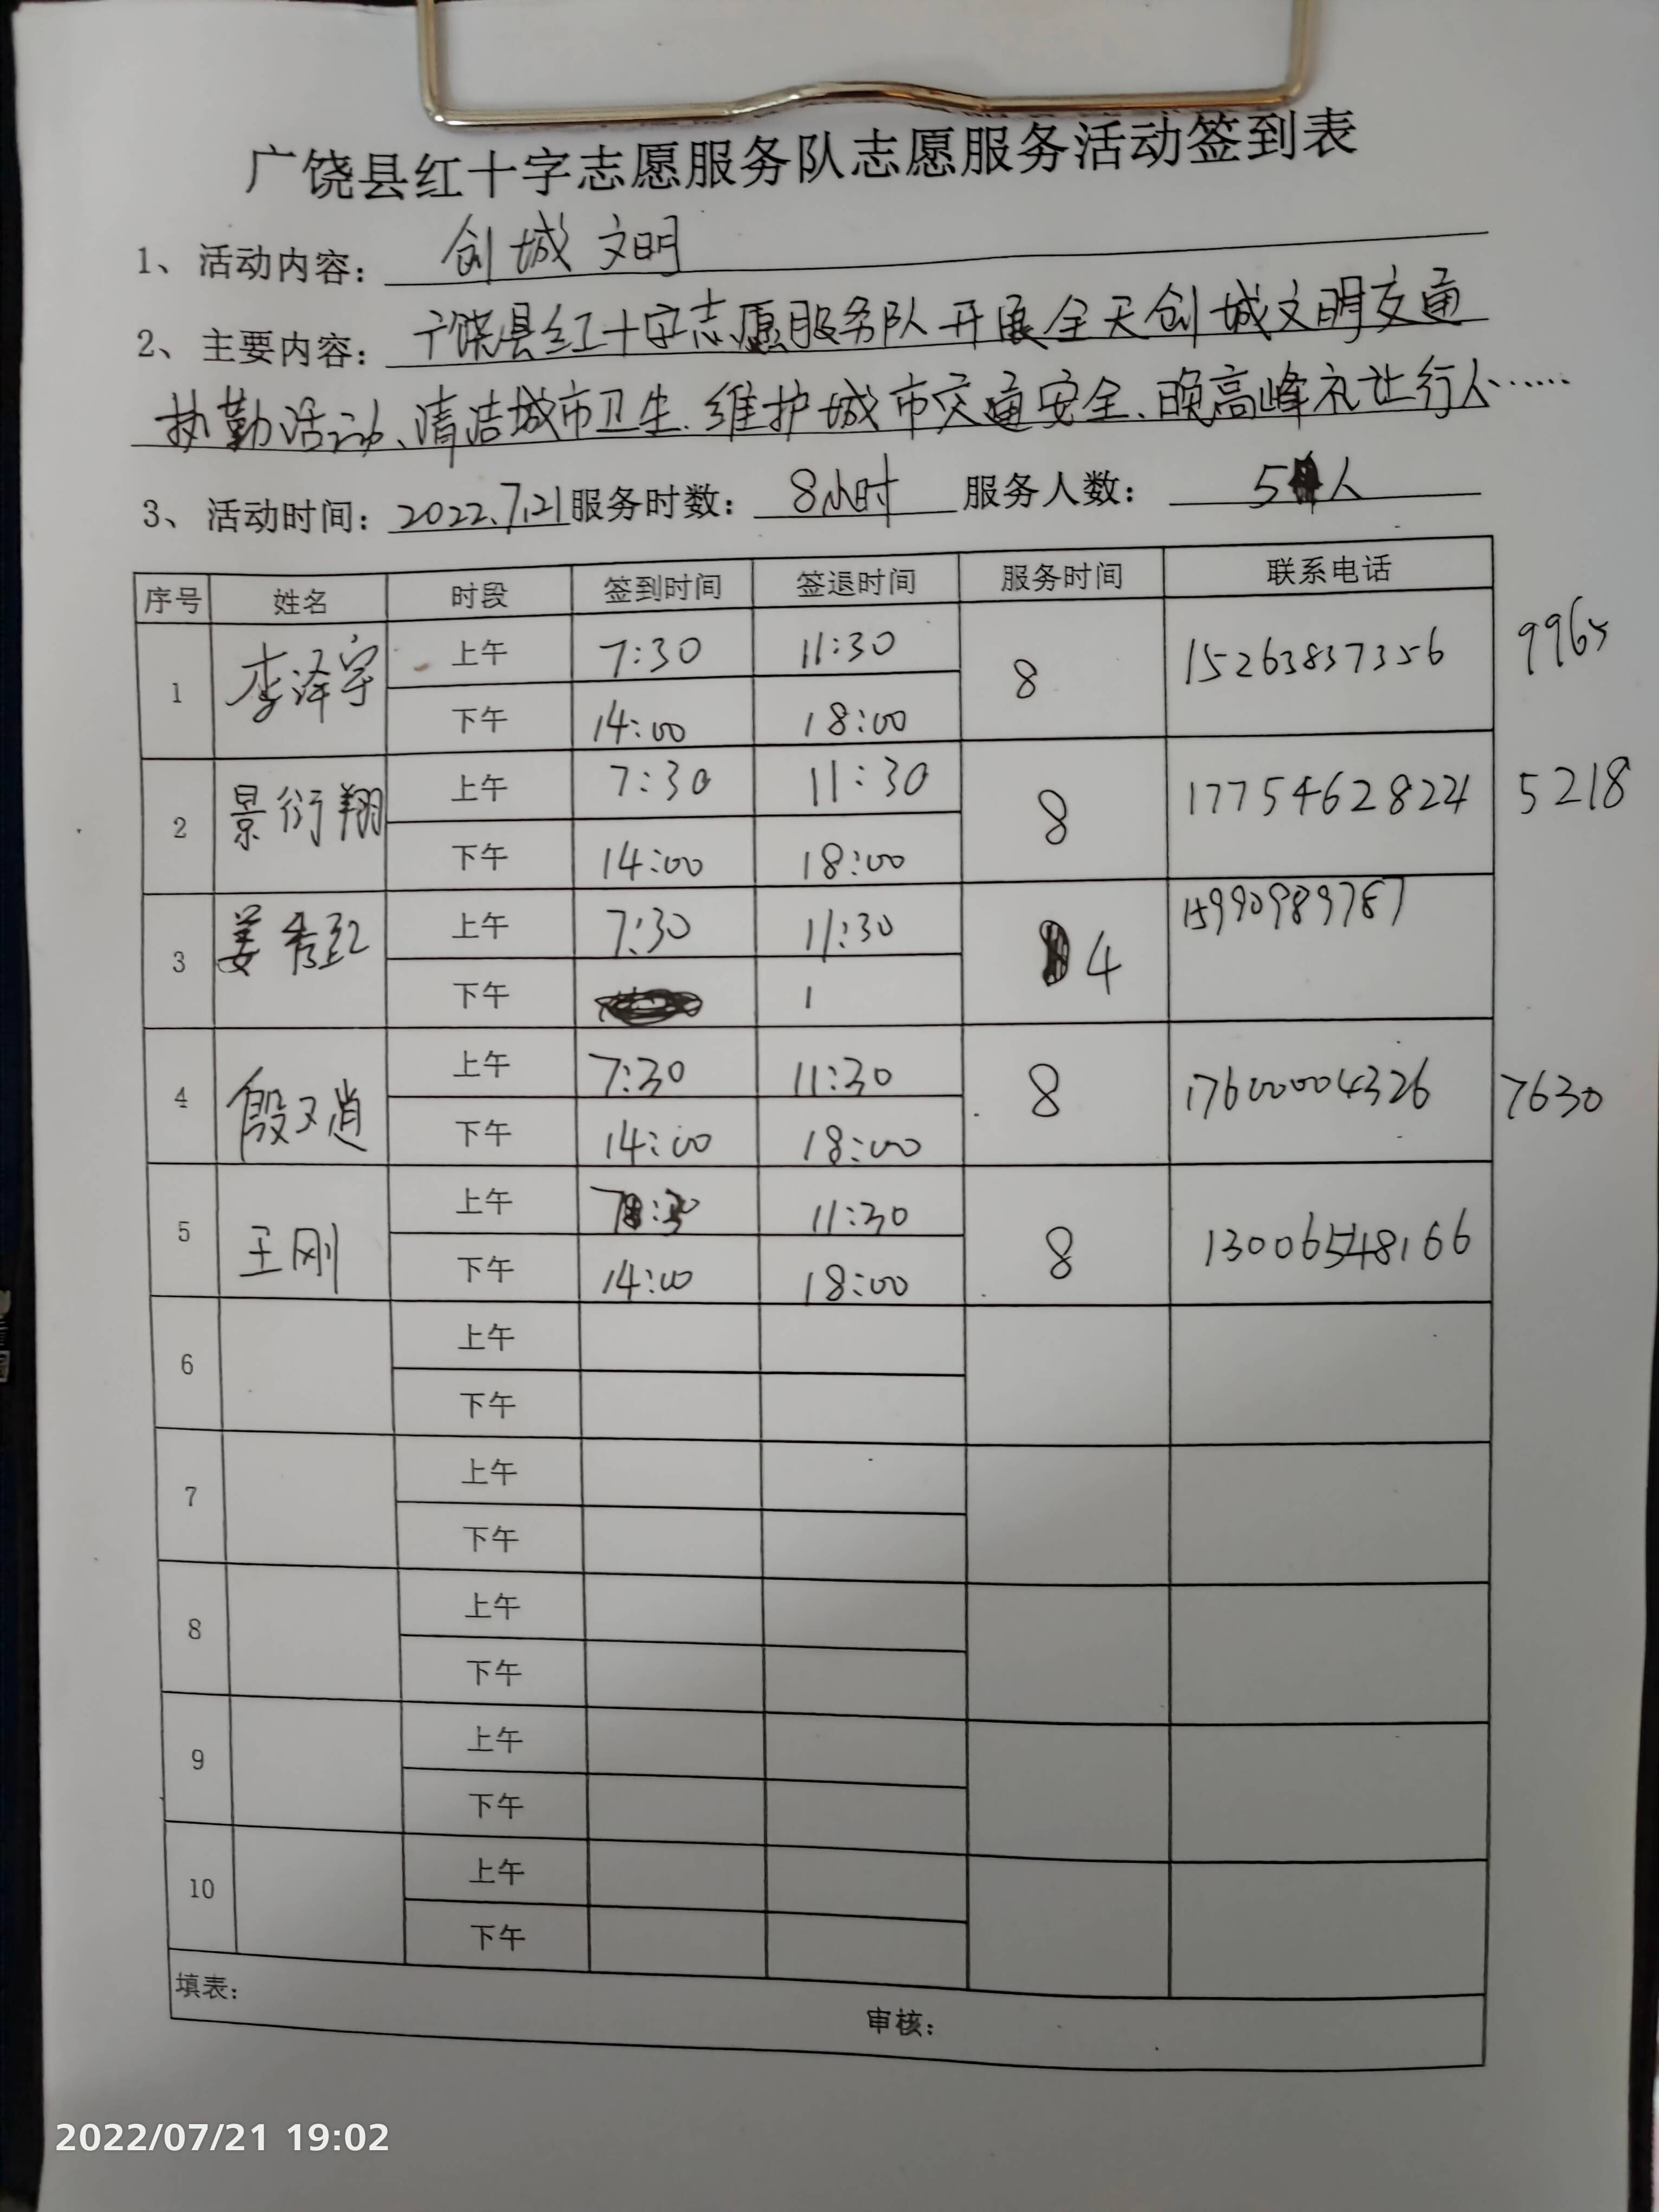 广饶县红十字志愿服务队志愿服务活动签到表
1、活动内容： 创城 文明
2、主要内容： 广饶县红十字志愿服务队开展全天创城文明交通
执勤活动、清洁城市卫生、维护城市交通安全、晚高峰礼让行人……
3、活动时间： 2022.7.21 服务时数： 8小时 服务人数： 5人
序号 姓名 时段 签到时间 签退时间 服务时间 联系电话
1 李泽宇 上午 7:30 11:30 8 15263837356 9965
下午 14:00 18:00
2 景衍翔 上午 7:30 11:30 8 17754628224 5218
下午 14:00 18:00
3 姜秀红 上午 7:30 11:30 4 15990989787
下午 1
4 殷 上午 7:30 11:30 8 17600004326 7630
下午 14:00 18:00
5 王刚 上午 7:30 11:30 8 13006548166
下午 14:00 18:00
6 上午
下午
7 上午
下午
8 上午
下午
9 上午
下午
10 上午
下午
填表： 审核：
2022/07/21 19:02